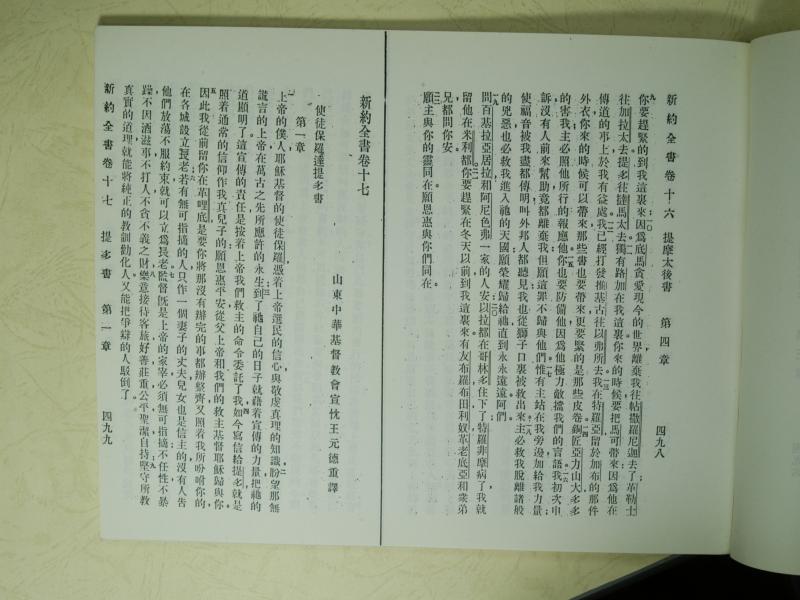 新約全書卷十六 提摩太後書 第四章 四九八
九你要趕緊的到我這裏來一〇因爲底馬貪愛現今的世界離棄我往帖撒羅尼迦去了革勒士
往加拉太去提多往撻馬太去一一獨有路加在我這裏你來的時候要把馬可帶來因爲他在
傳道的事上於我有益處一二我已經打發推基古往以弗所去一三我在特羅亞留於加布的那件
外衣你來的時候可以帶來那些書也要帶來更要緊的是那些皮卷一四銅匠亞力山大多多
的害我主必照他所行的報應他一五你也要防備他因爲他極力敵擋我們的言語一六我初次申
訴沒有人前來幫助竟都離棄我但願這罪不歸與他們一七惟有主站在我旁邊加給我力量
使福音被我盡都傳明叫外邦人都聽見我也從獅子口裏被救出來一八主必救我脫離諸般
的兇惡也必救我進入祂的天國願榮耀歸給祂直到永永遠遠阿們
一九問百基拉亞居拉和阿尼色弗一家的人安二〇以拉都在哥林多住下了特羅非摩病了我就
留他在米利都二一你要趕緊在冬天以前到我這裏來有友布羅布田利奴革老底亞和衆弟
兄都問你安
二二願主與你的靈同在願恩惠與你們同在
新約全書卷十七
使徒保羅達提多書
山東中華基督教會宣忱王元德重譯
第一章
上帝的僕人耶穌基督的使徒保羅憑着上帝選民的信心與敬虔眞理的知識二盼望那無
謊言的上帝在萬古之先所應許的永生三到了祂自己的日子就藉着宣傳的力量把祂的
道顯明了這宣傳的責任是按着上帝我們救主的命令委託了我四如今寫信給提多就是
照着通常的信仰作我眞兒子的願恩惠平安從父上帝和我們的救主基督耶穌歸與你
五因此我從前留你在革哩底是要你將那沒有辦完的事都辦整齊又照着我所吩咐你的
在各城設立長老六若有無可指摘的人只作一個妻子的丈夫兒女也是信主的沒有人告
他們放蕩不服約束就可以立爲長老七監督旣是上帝的家宰必須無可指摘不任性不暴
躁不因酒滋事不打人不貪不義之財八樂意接待客旅好善莊重公平聖潔自持九堅守所教
眞實的道理就能將純正的教訓勸化人又能把爭辯的人駁倒了
新約全書卷十七 提多書 第一章 四九九